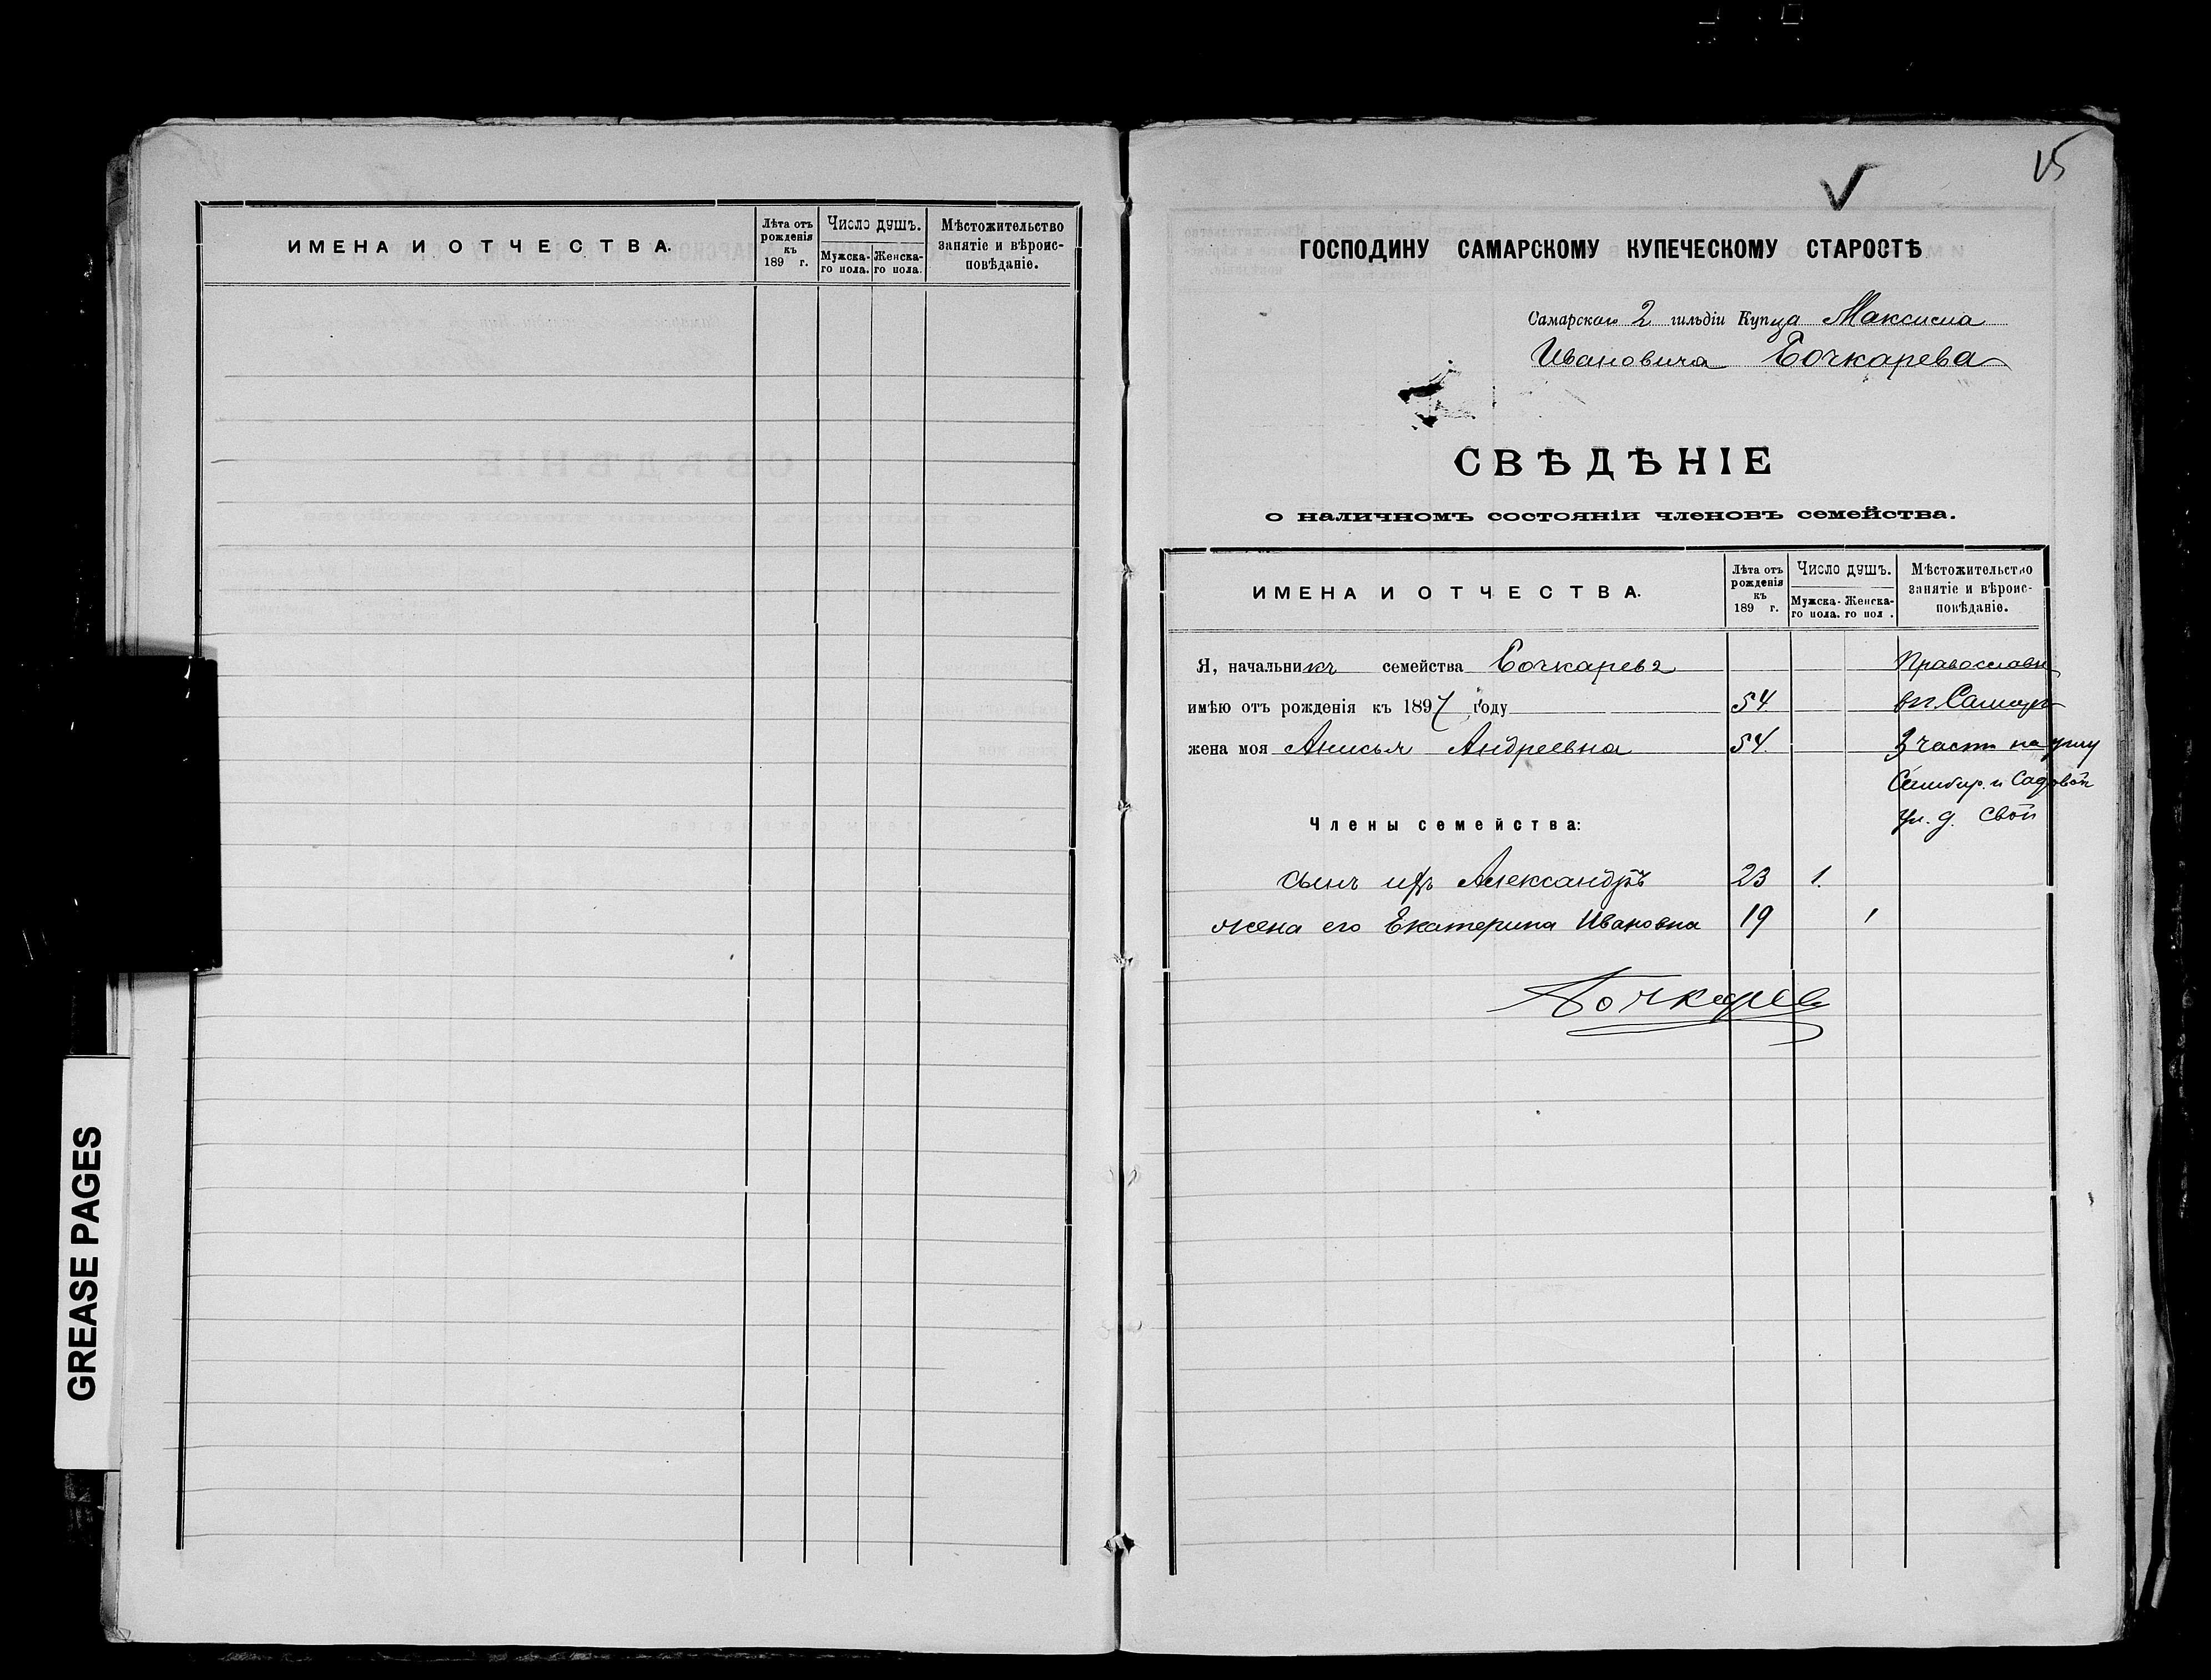 ИМЕНА И ОТЧЕСТВА.
Лѣта отъ рожденія къ 189 г.
Число душъ.
Мужска-го пола.
Женска-го пола.
Мѣстожительство занятіе и вѣроис-повѣданіе.
GREASE PAGES
15
ГОСПОДИНУ САМАРСКОМУ КУПЕЧЕСКОМУ СТАРОСТѢ
Самарскаго 2 гильдіи Купца Максима
Ивановича Бочкарева
СВѢДѢНІЕ
о наличномъ состояніи членовъ семейства.
ИМЕНА И ОТЧЕСТВА.
Лѣта отъ рожденія къ 189 г.
Число душъ.
Мужска-го пола.
Женска-го пол .
Мѣстожительство занятіе и вѣроис-повѣданіе.
Я, начальникъ семейства Бочкаревъ Православн
имѣю отъ рожденія къ 1897 году 54 въ г. Самарѣ
жена моя Анисья Андреевна 54. 3 части на углу
Симбир. и Садовой
Члены семейства: ул. д. свой
сынъ ихъ Александръ 23 1.
жена его Екатерина Ивановна 19 1
Бочкарев